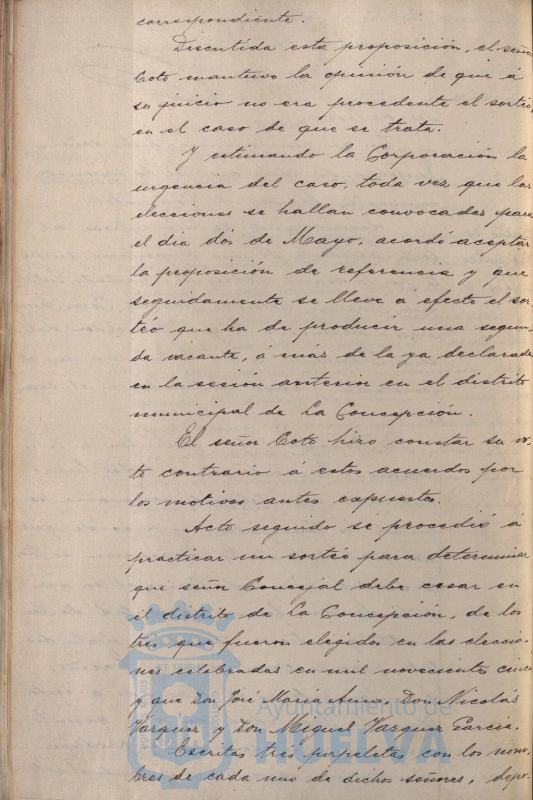 correspondiente.
Discutida esta proposición, el señor
Coto mantuvo la opinión de que á
su juicio no era procedente el sorteo,
en el caso de que se trata.
Y estimando la Corporación la
urgencia del caso, toda vez que las
elecciones se hallan convocadas para
el dia dós de Mayo, acordó aceptar
la proposición de referencia y que
seguidamente se lleve á efecto el sor-
téo que ha de producir una segun-
da vacante, á más de la ya declarada
en la sesión anterior en el distrito
municipal de La Concepción.
El señor Coto hizo constar su vo-
to contrario á estos acuerdos por
los motivos antes expuestos.
Acto seguido se procedió á
practicar un sortéo para determinar
que señor Concejal debe cesar en
el distrito de La Concepción, de los
tres que fueron elegidos en las eleccio-
nes celebradas en mil novecientos cinco
y que Don José Maria Don Nicolás
Vazquez y Don Miguel Vazquez Garcia.
Escritas tres papeletas con los nom-
bres de cada uno de dichos señores, depo-
Ayuntamiento de
HUELVA